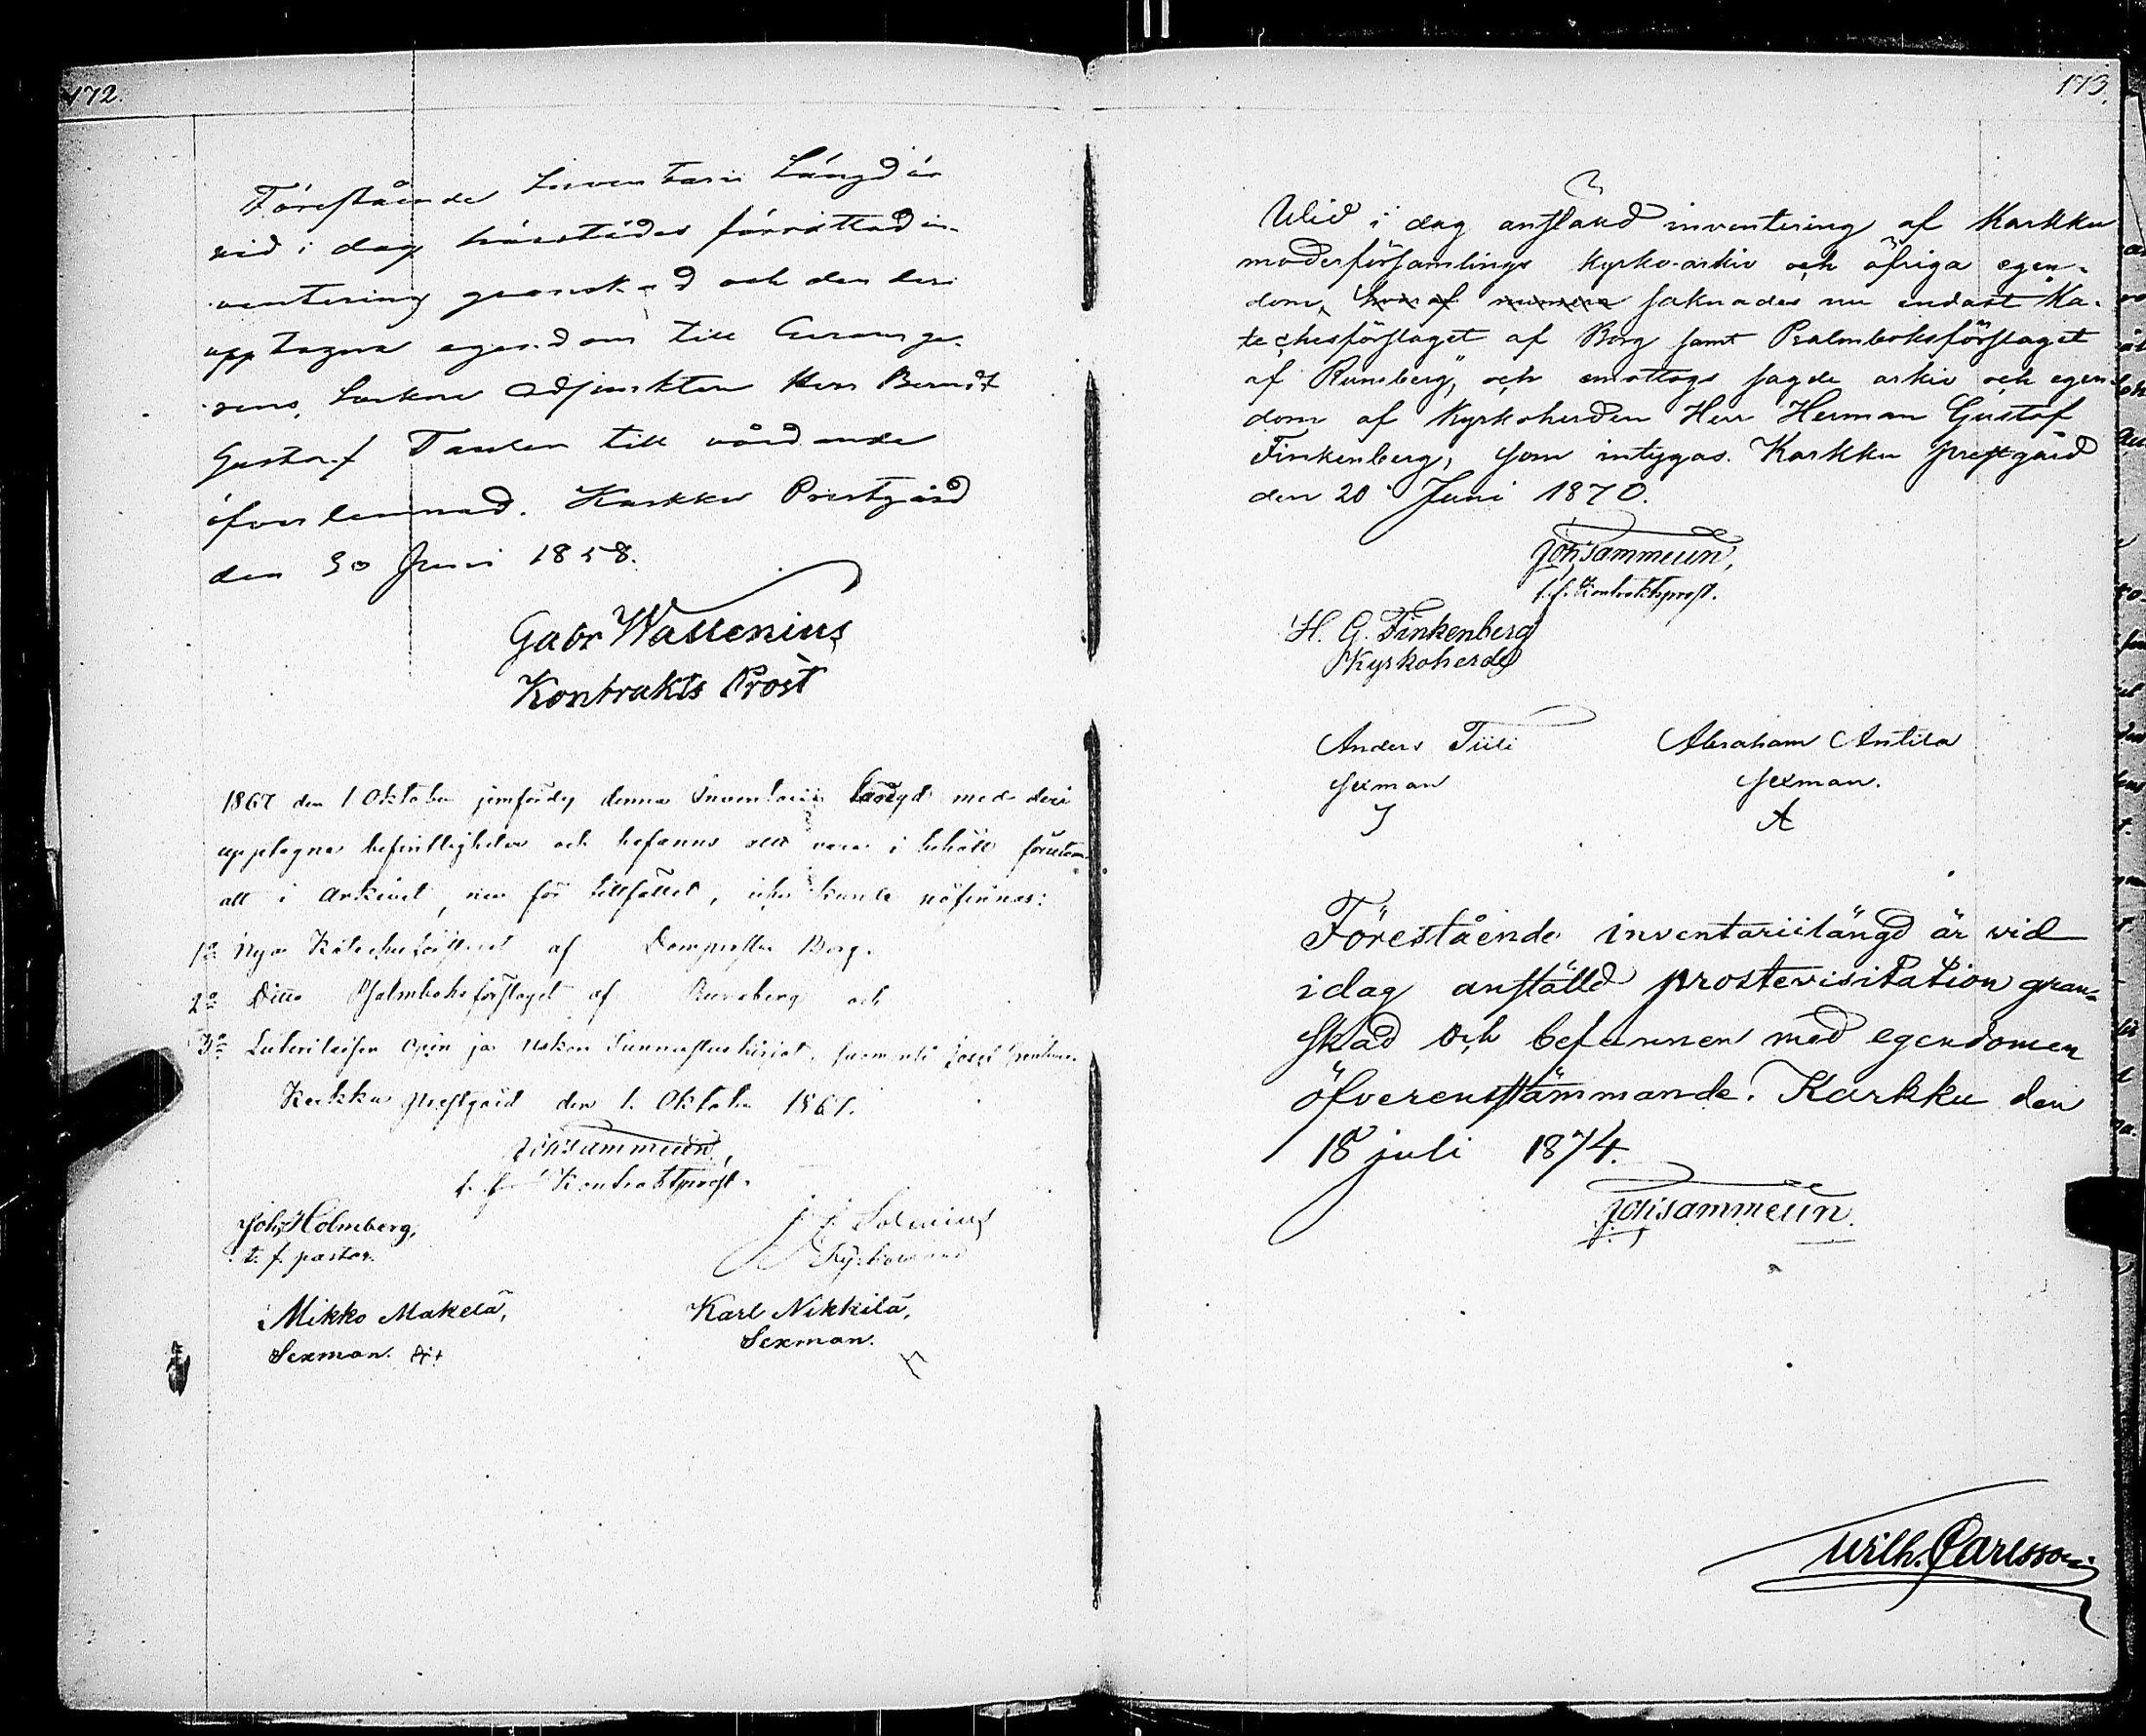 172.
Förestående Inventarii Längd är
vid i dag härstädes förrättad in-
ventering granskad och den deri
upptagna egendom till
Adjunkten Herr Berndt
Gustaf till vårdande
öfverlemnad. Karkku Prestgård
den 30 Juni 1858.
Gabr Wallenius
Kontrakts Prost
1867 den 1 Oktober jemfördes denna Inventarii Längd med deri
upptagna befintligheter och befanns allt vara i behåll förutom
att i Arkivet, nu för tillfället, icke kunde påfinnas:
1o Nya af Domprosten Borg.
2o Ditto Psalmboksförslaget af Runeberg och
3o Opin ja Uskon
Karkku Prestgård den 1. Oktober 1867.
Joh Sammelin,
t. f. Kontraktsprost.
Joh Holmberg,
t. f. pastor.
Mikko Mäkelä,
Sexman.
Karl Nikkilä,
Sexman.
173.
Wid i dag anstäld inventering af Karkku
moderförsamlings kyrko-arkiv och öfriga egen-
dom, saknades nu endast Ka-
techesförslaget af Borg samt Psalmboksförslaget
af Runeberg, och emottogs sagde arkiv och egen-
dom af Kyrkoherden Herr Herman Gustaf
Finkenberg, som intygas. Karkku prestgård
den 20 Juni 1870.
Joh Sammelin,
t. f. Kontraktsprost.
H. G. Finkenberg
Kyrkoherde
Anders Tiili Abraham Antila
sexman sexman.
A
Förestående inventariilängd är vid
idag anstälId prostevisitation gran-
skad och befunnen med egendomen
öfverensstämmande. Karkku den
18 juli 1874.
Joh Sammelin.
Wilh. Carlsson